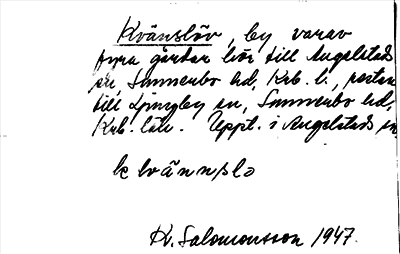 Kvänslöv, by varav
fyra gårdar hör till Angelstads
sn, Sunnerbo hd, Krb. l., resten
till Ljungby sn, Sunnerbo hd,
Krb. län. Uppt. i Angelstads sn
kvännslo
K. Salomonsson 1947.